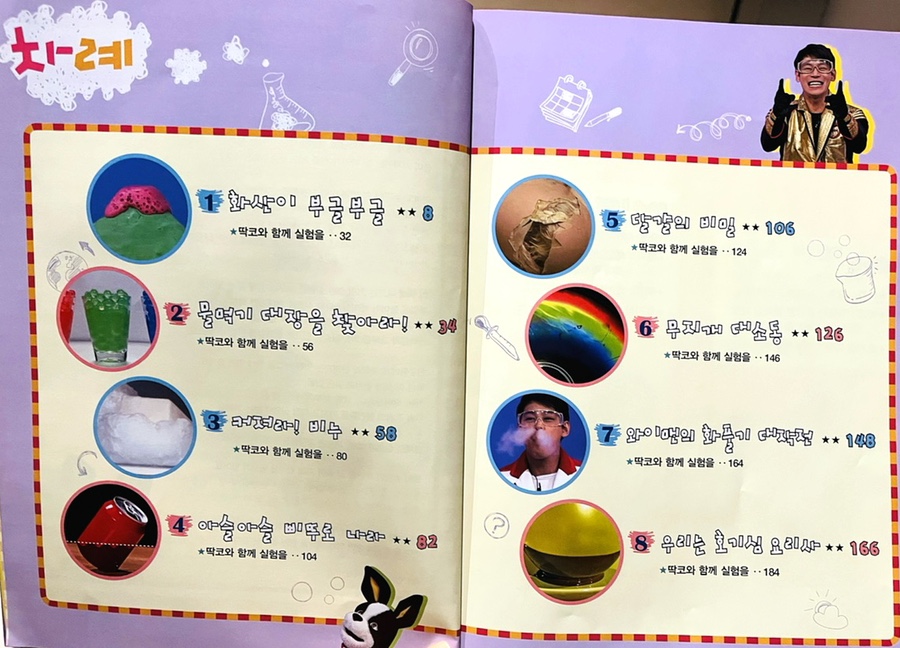 차례
1 화산이 부글부글 ★★ 8
★딱코와 함께 실험을 ·· 32
2 물먹기 대장을 찾아라! ★★ 34
★딱코와 함께 실험을 ·· 56
3 커져라! 비누 ★★ 58
★딱코와 함께 실험을 ·· 80
4 아슬아슬 삐뚜로 나라 ★★ 82
★딱코와 함께 실험을 ·· 104
5 달걀의 비밀 ★★ 106
★딱코와 함께 실험을 ·· 124
6 무지개 대소동 ★★ 126
★딱코와 함께 실험을 ·· 146
7 와이맨의 화풀기 대작전 ★★ 148
★딱코와 함께 실험을 ·· 164
8 우리는 호기심 요리사 ★★ 166
★딱코와 함께 실험을 ·· 184